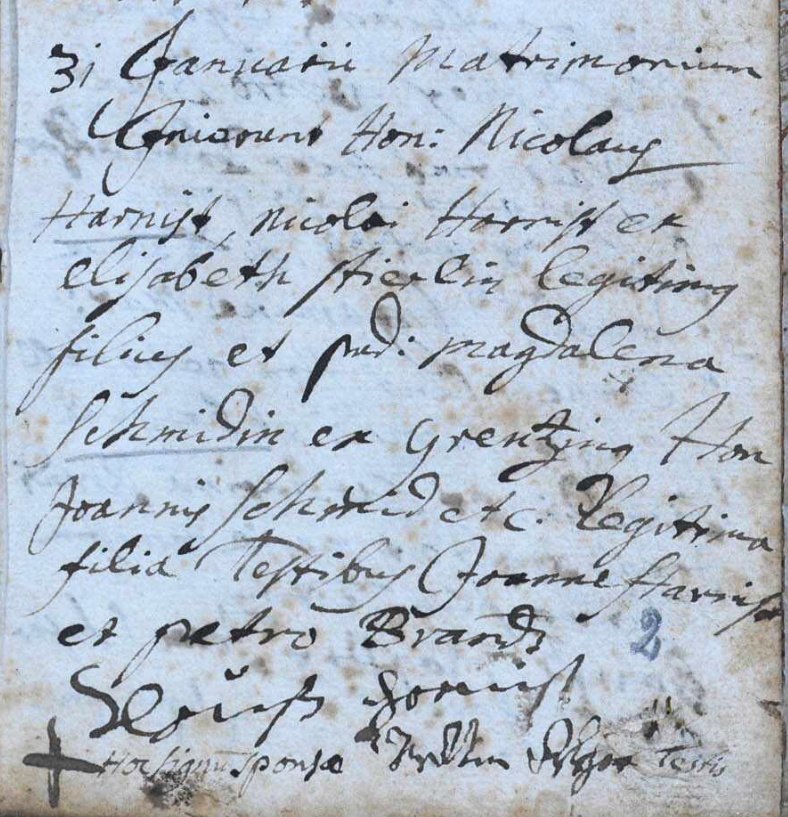 31 Januarii Matrimonium
Inierunt Hon: Nicolaus
Harnist, Nicolai Harnist et
elisabeth stierlin legitimus
filius et pud: magdalena
Schmidin ex grentzing Hon
Joannis Schmid etc: legitima
filia Testibus Joanne Harnist
et petro Brand
2
Hoc signum sponsæ Testis